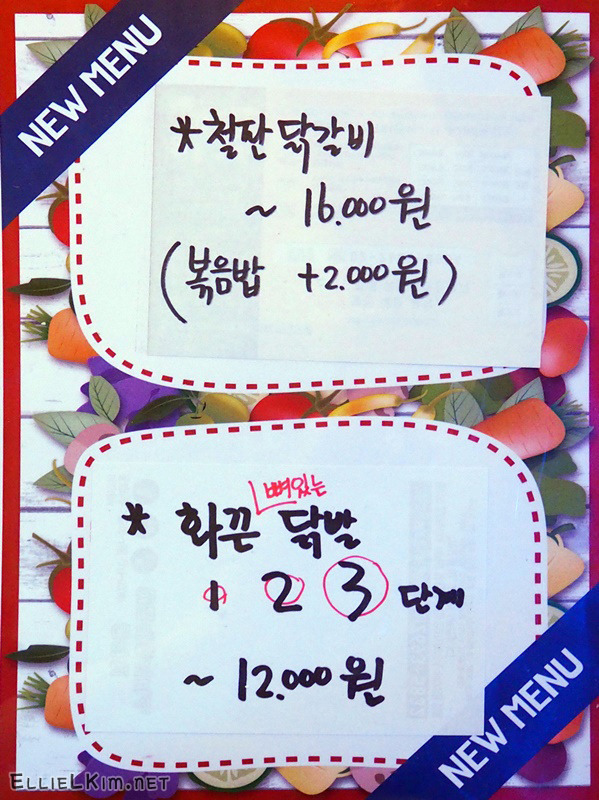 NEW MENU
*철판 닭갈비
~ 16.000원
(볶음밥 +2.000원)
뼈있는
* 화끈 닭발
1 2 3 단계
~ 12.000원
NEW MENU
ELLIELKIM.NET